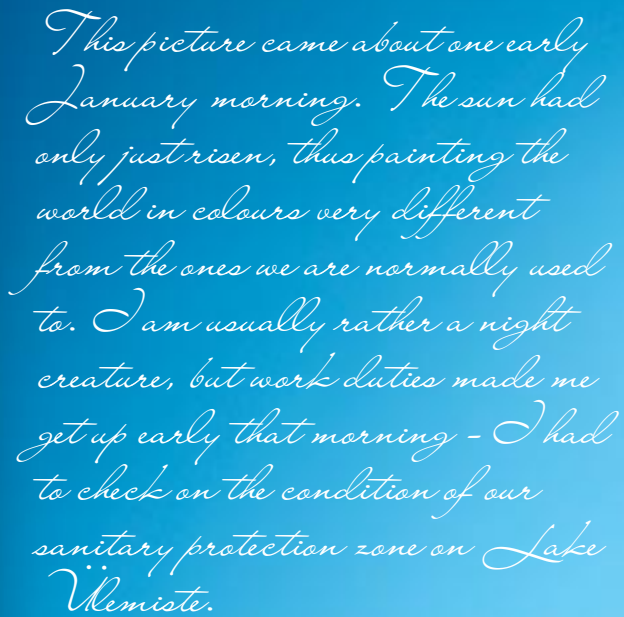 This picture came about one early
January morning. The sun had
only just risen, thus painting the
world in colours very different
from the ones we are normally used
to. I am usually rather a night
creature, but work duties made me
get up early that morning - I had
to check on the condition of our
sanitary protection zone on Lake
Ülemiste.